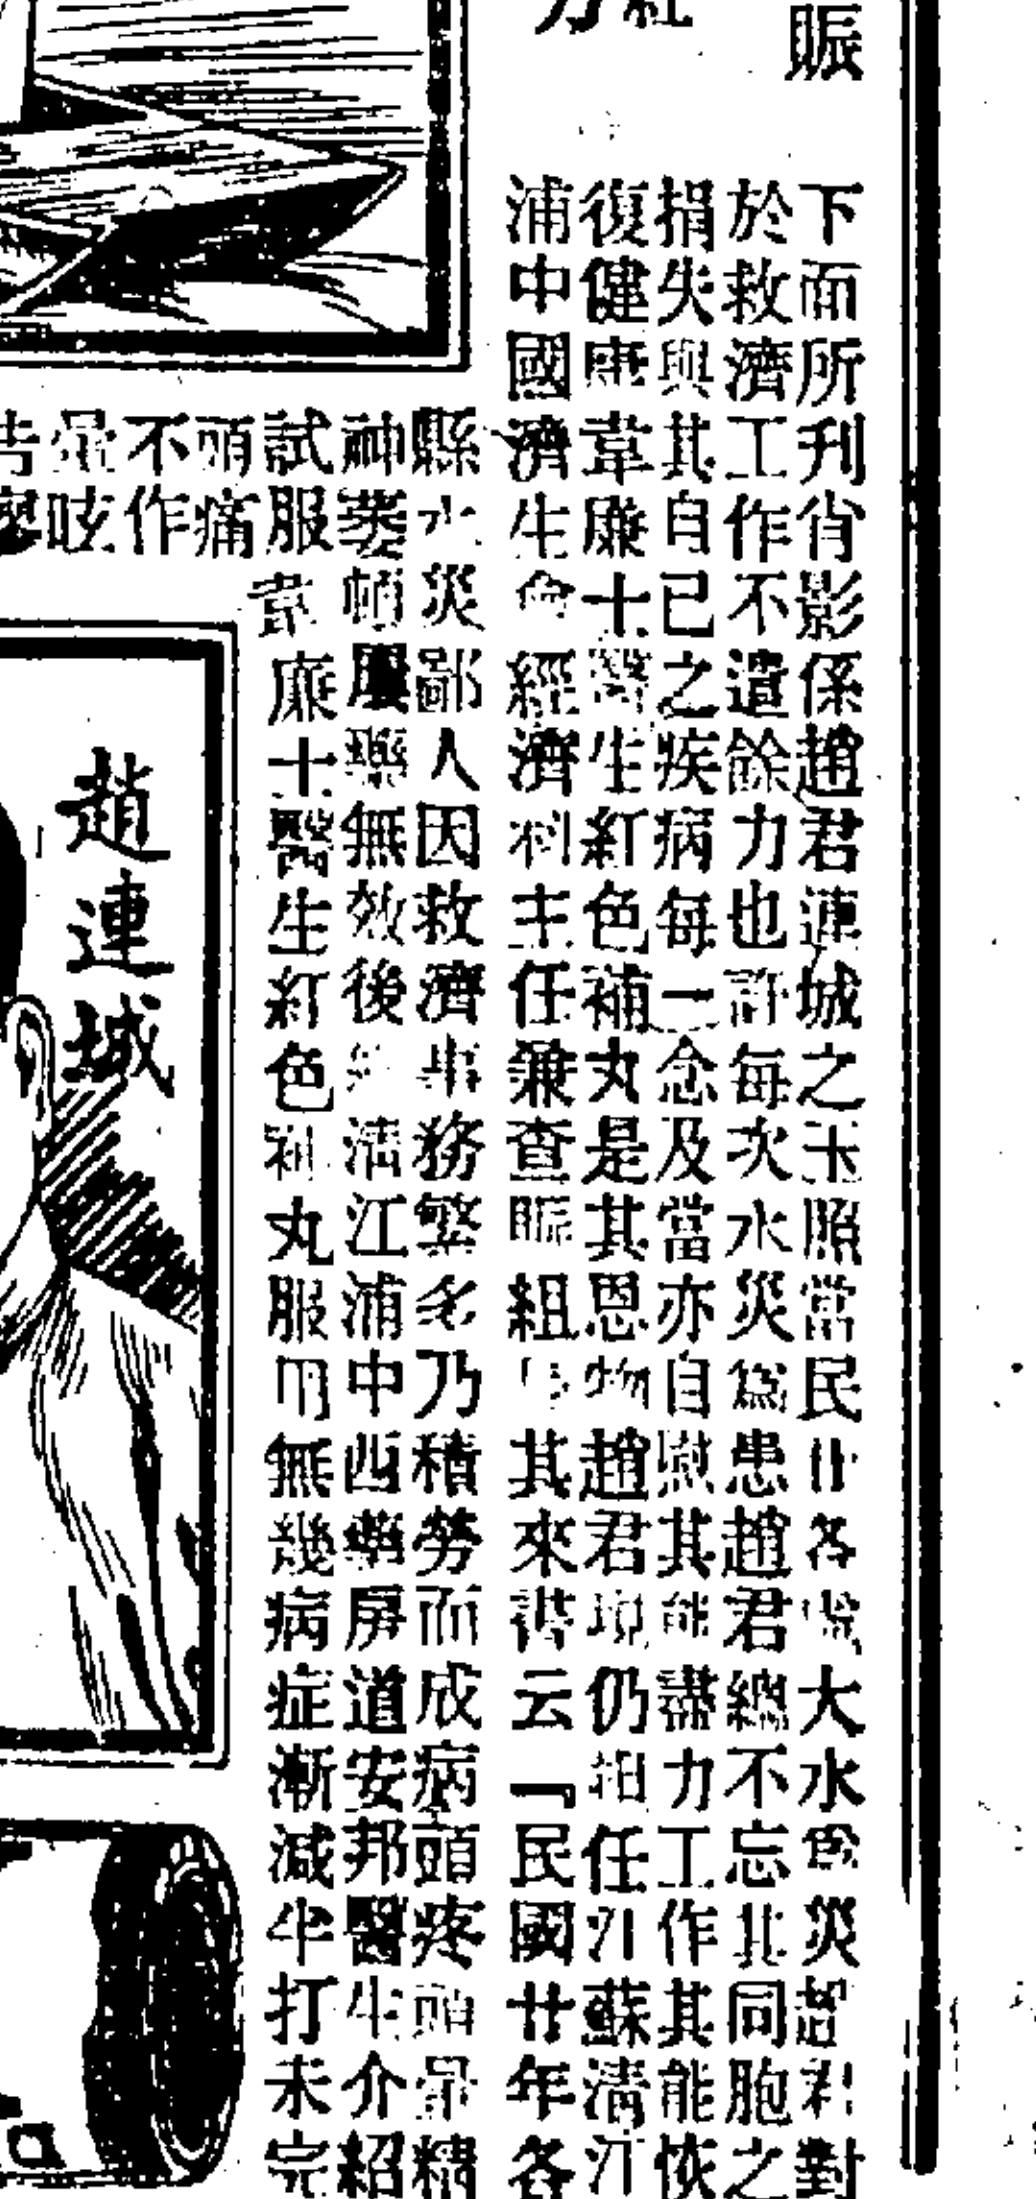 賑
紅
力
下面所刋肖影係趙君連城之玉照當民廿各處大水為災趙君對
於救濟工作不遺餘力也許每次水災為患趙君總不忘其同胞之
捐失與其自已之疾病每一念及當亦自慰其能盡力工作其能恢
復健康韋廉士醫生紅色補丸是其恩物趙君現仍担任江蘇清江
浦中國濟生會經濟科主任兼查賑組 其來書云『民國廿年各
縣水災鄙人因救濟事務繁多乃積勞而成病頭疼頭暈精
神萎頓屢藥無效後 清江浦中西藥房道安邦醫生介紹
試服韋廉士醫生紅色補丸服用無幾病症漸減半打未完
頭痛
不作
暈眩
告
趙連城